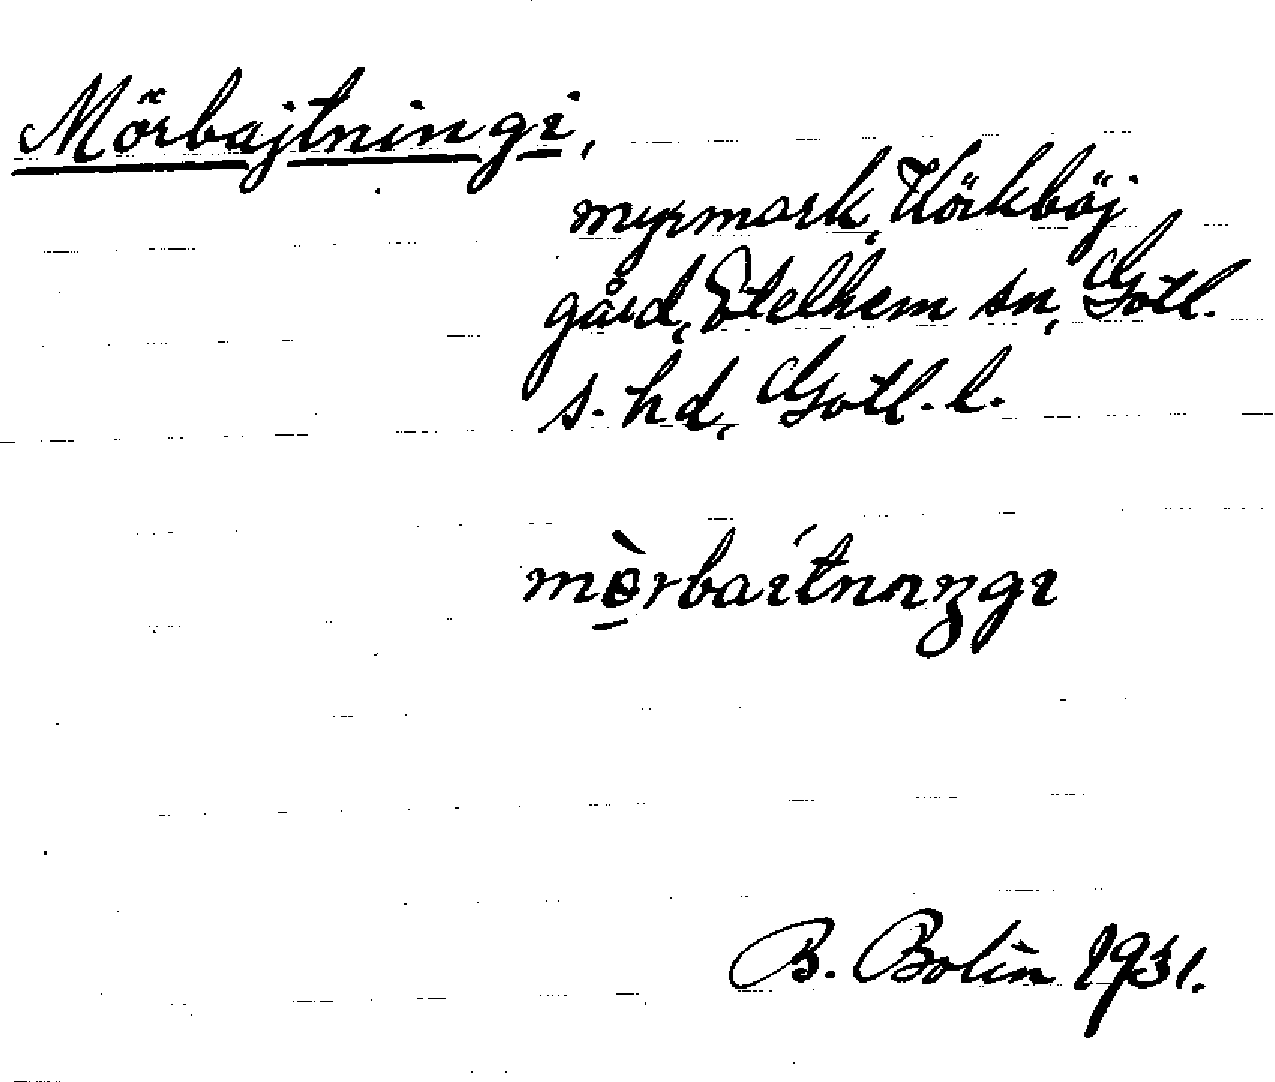 Mörbajtningi,
myrmark, Hörkböj
gård, Etelhem sn, Gotl.
s. hd, Gotl. l.
B. Bolin 1931.